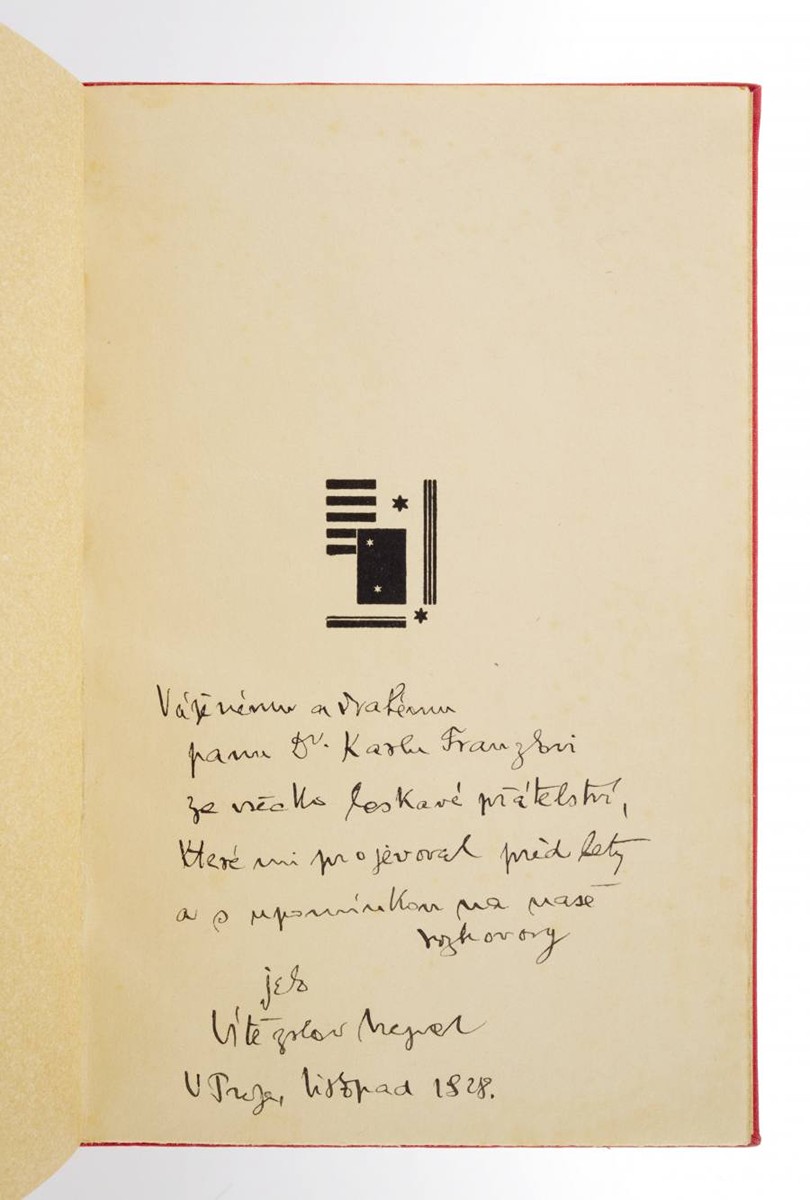 Váženému a drahému
panu Dr. Karlu Franzlovi
za všecko laskavé přátelství,
které mi projevoval před lety
a s upomínkou na naše
rozhovory
jeho
Vítězslav Nezval
V Praze, listopad 1928.